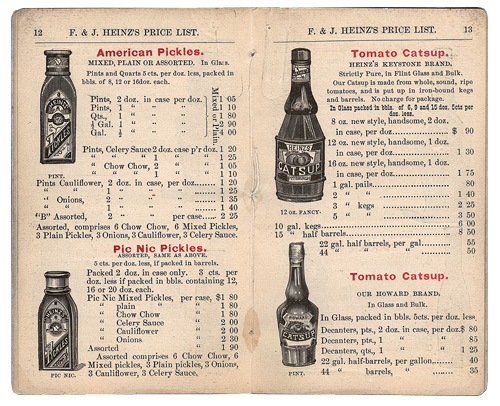 12 F. & J. HEINZ'S PRICE LIST.
American Pickles.
MIXED, PLAIN OR ASSORTED. In Glass.
Pints and Quarts 5 cts. per doz. less, packed in
bbls. of 8, 12 or 16doz. each.
Pints, 2 doz. in case per doz. 1 05
Pints, 1 " " " 1 10
Qts., 1 " " " 1 80
½ Gal. 1 " " " 2 90
Gal. ½ " " " 4 00
Mixed or Plain
Pints, Celery Sauce 2 doz. case p'r doz. 1 20
" " " 1 " " 1 25
" Chow Chow, 2 " " 1 05
" " " 1 " " 1 10
Pints Cauliflower, 2 doz. in case, per doz. 1 20
" " 1 " " " 1 25
" Onions, 2 " " " 1 35
" " 1 " " " 1 40
"B" Assorted, 2 " per case 2 25
Assorted, comprises 6 Chow Chow, 6 Mixed,
3 Plain Pickles, 3 Onions, 3 Cauliflower, 3 Celery Sauce.
PINT.
Pic Nic Pickles.
ASSORTED, SAME AS ABOVE.
5 cts. per doz. less, if packed in barrels.
Packed 2 doz. in case only. 3 cts. per
doz. less if packed in bbls. containing 12,
16 or 20 doz. each.
Pic Nic Mixed Pickles, per case, $1 80
" plain " " 1 80
" Chow Chow " 1 80
" Celery Sauce " 2 00
" Cauliflower " 2 00
" Onions " 2 30
Assorted " 1 90
Assorted comprises 6 Chow Chow, 6
Mixed pickles, 3 Plain pickles, 3 Onions,
3 Cauliflower, 3 Celery Sauce.
PIC NIC.
F. & J. HEINZ'S PRICE LIST. 13
Tomato Catsup.
HEINZ'S KEYSTONE BRAND,
Strictly Pure, in Flint Glass and Bulk.
Our Catsup is made from whole, sound, ripe
tomatoes, and is put up in iron-bound kegs
and barrels. No charge for package.
In Glass packed in bbls. of 6, 9 and 15 doz. 5cts per
doz. less.
8 oz. new style, handsome, 2 doz.
in case, per doz $ 90
12 oz. new style, handsome, 1 doz.
in case, per doz 1 30
16 oz. new style, handsome, 1 doz.
in case, per doz 1 75
1 gal. pails 80
2 " " 1 40
3 " kegs 2 25
5 " " 3 50
10 gal. kegs 6 00
15 " half barrels 8 50
22 gal. half barrels, per gal 55
44 " " " 50
HEINZ'S
CATSUP
12 OZ. FANCY.
Tomato Catsup.
OUR HOWARD BRAND.
In Glass and Bulk.
In Glass, packed in bbls. 5cts. per doz. less.
Decanters, pts., 2 doz. in case, per doz. $ 80
Decanters, pts., 1 " " 85
Decanters, qts., 1 " " 1 25
22 gal. half-barrels, per gallon 40
44 " barrels, " 35
PINT.